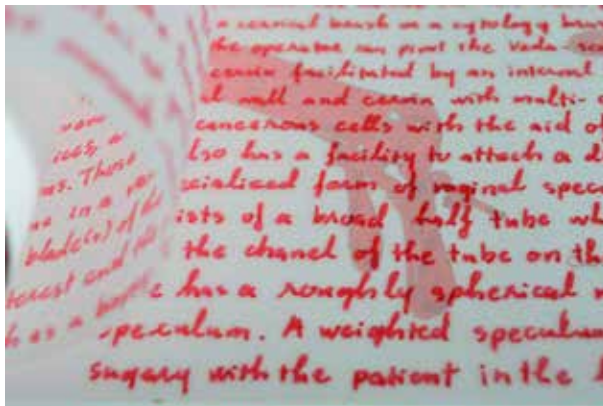 a cervical brush or a cytology
the operator can pivot the
cervix facilitated by an internal
l wall and cervix with multi-
cancerous cells with the aid of
lso has a facility to attach a d
ecialised form of vaginal spec
ists of a broad half tube wh
the chanel of the tube on th
e has a roughly spherical
speculum. A weighted speculum
sugery with the patient in the
ices, a
ms. These
ue in a
blade(s) of the
terest and
h as a